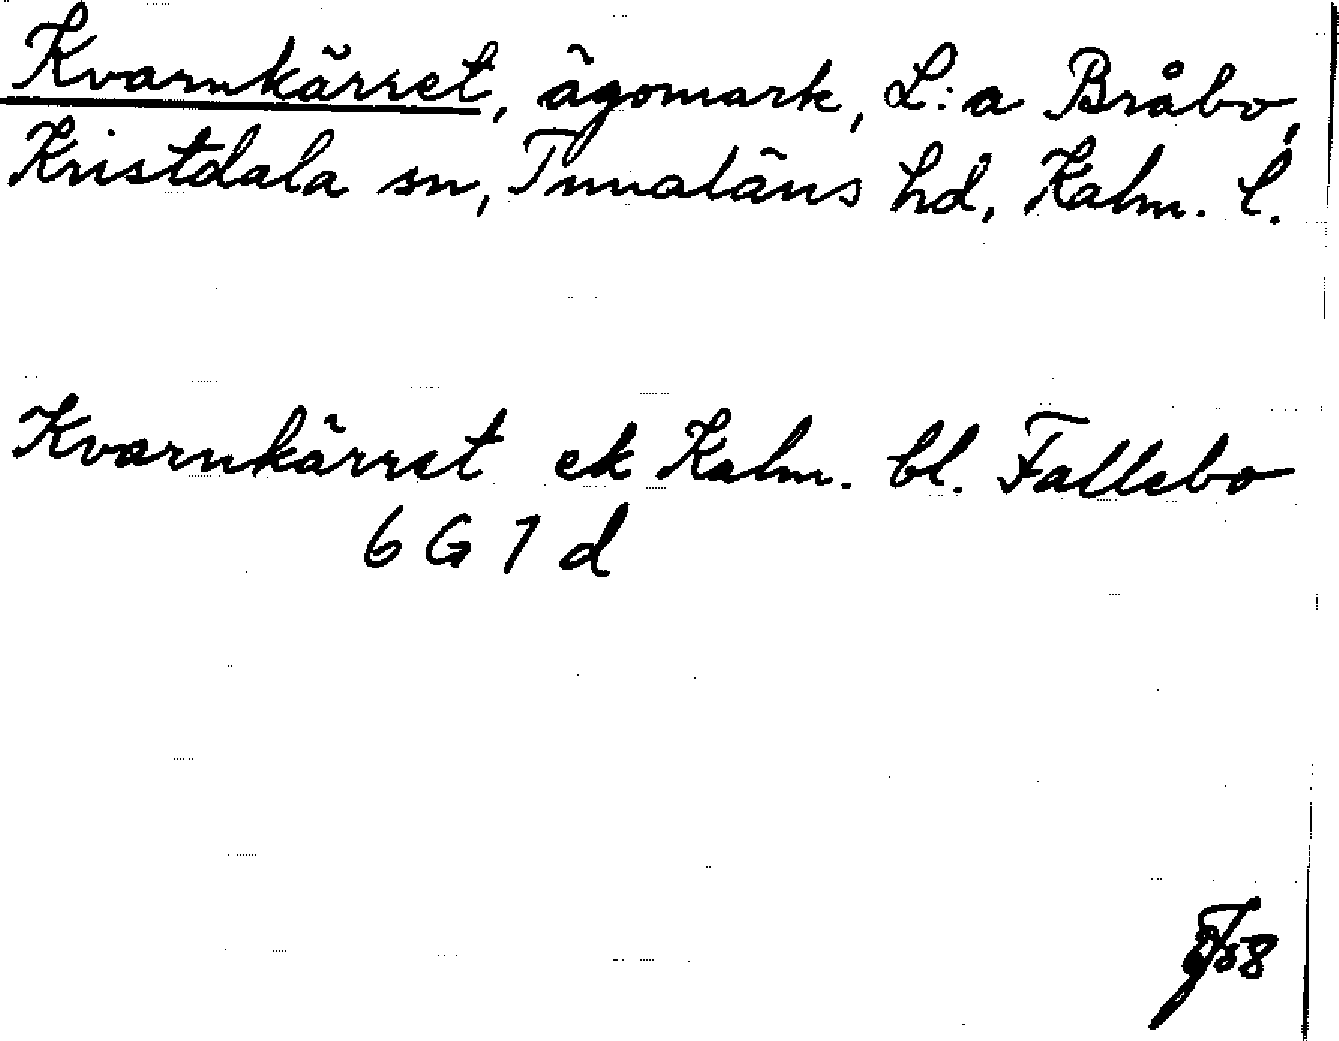 Kvarnkärret, ägomark, L:a Bråbo,
Kristdala sn, Tunaläns hd, Kalm. l.
Kvarnkärret ek Kalm. bl. Fallebo
6 G 7 d
58